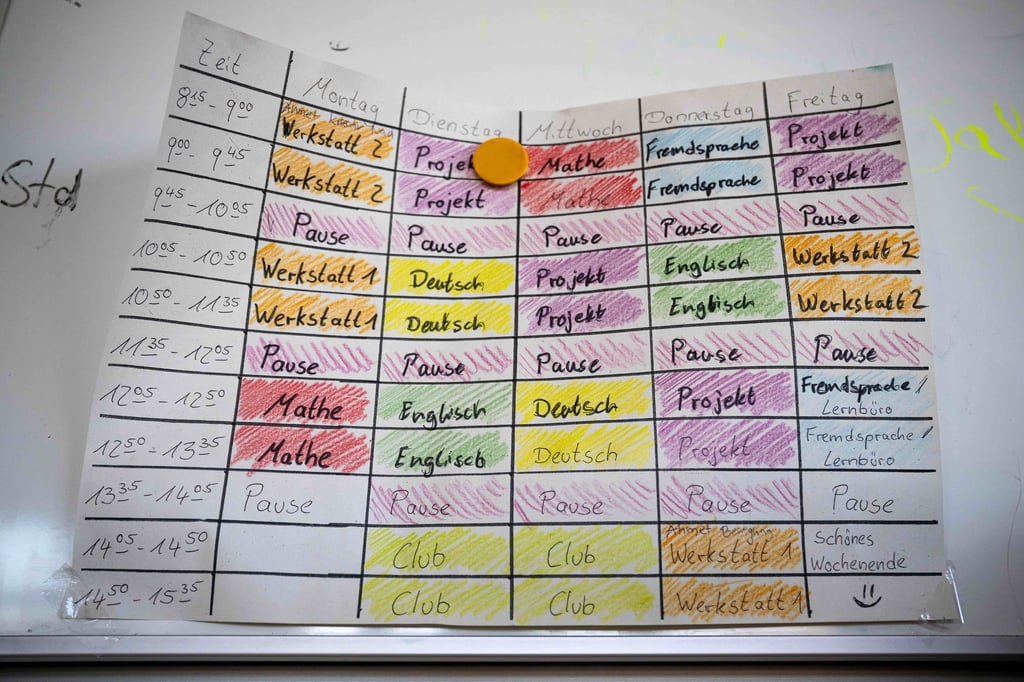 Zeit Montag Dienstag Mittwoch Donnerstag Freitag
8 15 - 9 00 Werkstatt 2 Projekt Mathe Fremdsprache Projekt
9 00 - 9 45 Werkstatt 2 Projekt Mathe Fremdsprache Projekt
9 45 - 10 05 Pause Pause Pause Pause Pause
10 05 - 10 50 Werkstatt 1 Deutsch Projekt Englisch Werkstatt 2
10 50 - 11 35 Werkstatt 1 Deutsch Projekt Englisch Werkstatt 2
11 35 - 12 05 Pause Pause Pause Pause Pause
12 05 - 12 50 Mathe Englisch Deutsch Projekt Fremdsprache /
Lernbüro
12 50 - 13 35 Mathe Englisch Deutsch Projekt Fremdsprache /
Lernbüro
13 35 - 14 05 Pause Pause Pause Pause Pause
Ahmet
14 05 - 14 50 Club Club Werkstatt 1 Schönes
Wochenende
14 50 - 15 35 Club Club Werkstatt 1
Std